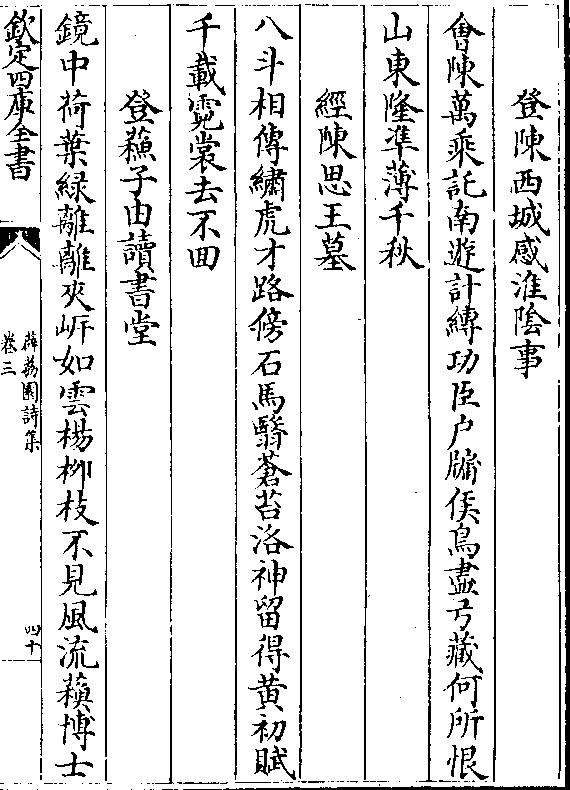 登陳西城感淮隂事
會陳萬乘託南遊計縛功臣户牖侯鳥盡弓藏何所恨
山東隆凖薄千秋
經陳思王墓
八斗相傳繡虎才路傍石馬翳蒼苔洛神留得黄初賦
千載霓裳去不回
登蘓子由讀書堂
鏡中荷葉緑離離夾岍如雲楊柳枝不見風流蘓博士
欽定四庫全書
薜荔園詩集
卷三
四十